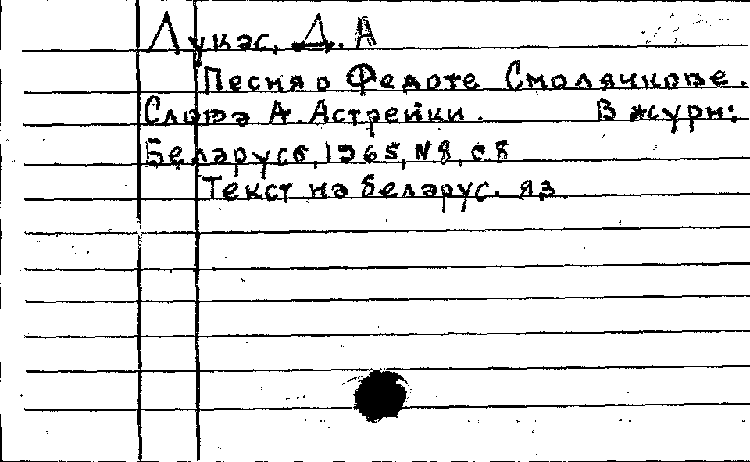 Лукас, Д. А
Песня о Федоте Смолячкове.
Слова А. Астрейки. В журн:
Беларусь, 1965, № 8, с. 8
Текст на беларус. яз.